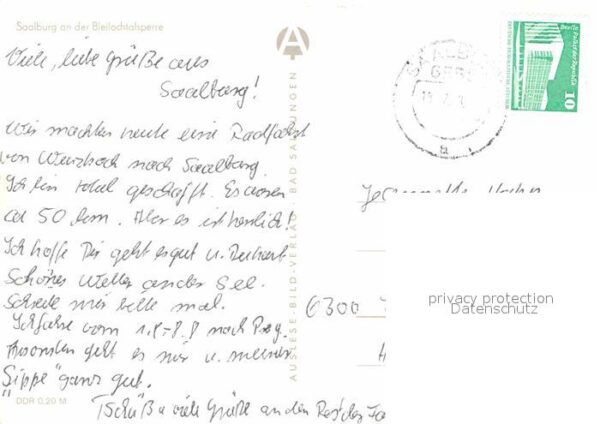 Saalburg an der Bleilochtalsperre
Viele, liebe Grüße aus
Saalburg!
Wir machten heute eine Radfahrt
von Wurzbach nach Saalburg.
Ich bin total geschafft. Es waren
ca 50 km. Aber es ist herrlich!
Ich hoffe Dir geht es gut u.
Schönes Wetter an der See.
Schreibe mir bitte mal.
Ich fahre vom 1.8-8.8 nach Prag.
Ansonsten geht es mir u. meiner
"Sippe" ganz gut.
Tschüß u viele Grüße an den
DDR 0,20 M
AUSLESE-BILD-VERLAG · BAD SALZUNGEN
SAALBURG
Berlin Palast der Republik
10
6300
privacy protection
Datenschutz